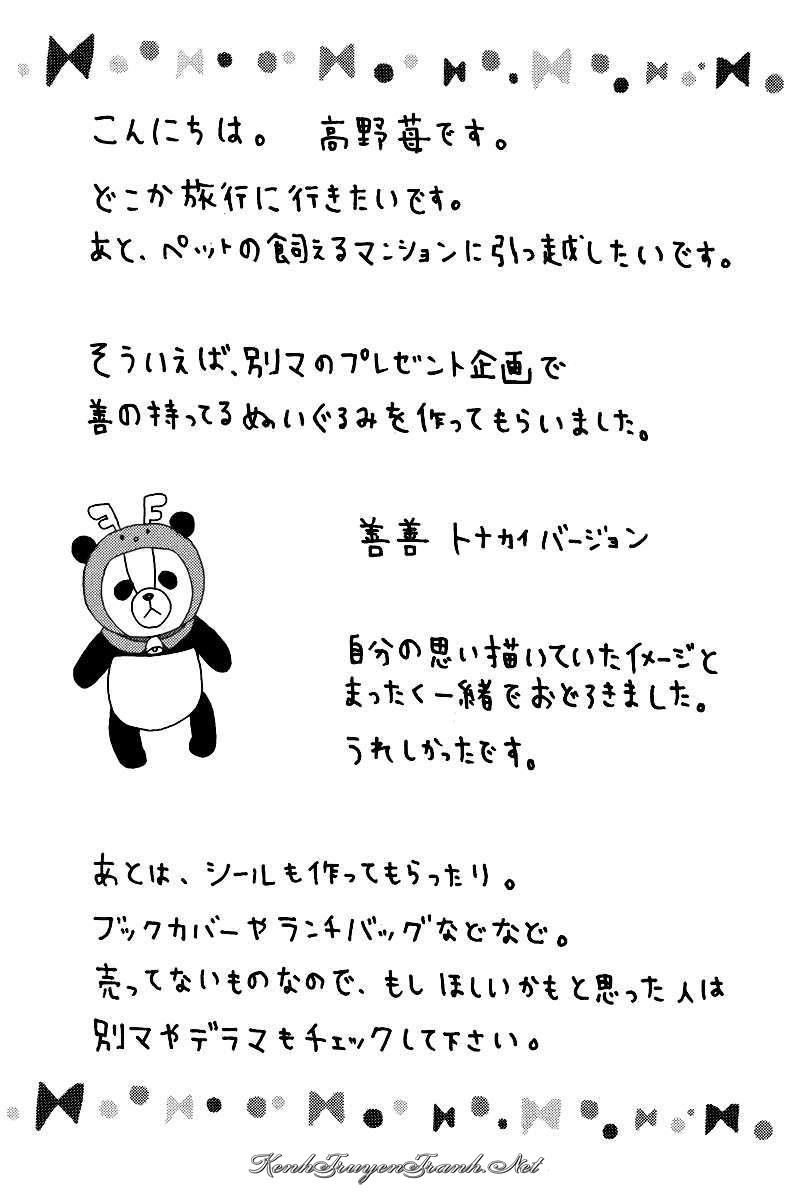 こんにちは。 高野苺です。
どこか旅行に行きたいです。
あと、ペットの飼えるマンションに引っ越ししたいです。
そういえば、別マのプレゼント企画で
善の持ってるぬいぐるみを作ってもらいました。
善善 トナカイバージョン
自分の思い描いていたイメージと
まったく一緒でおどろきました。
うれしかったです。
あとは、シールも作ってもらったり。
ブックカバーやランチバッグなどなど。
売ってないものなので、もしほしいかもと思った人は
別マやデラマもチェックして下さい。
KenhTruyenTranh.Net